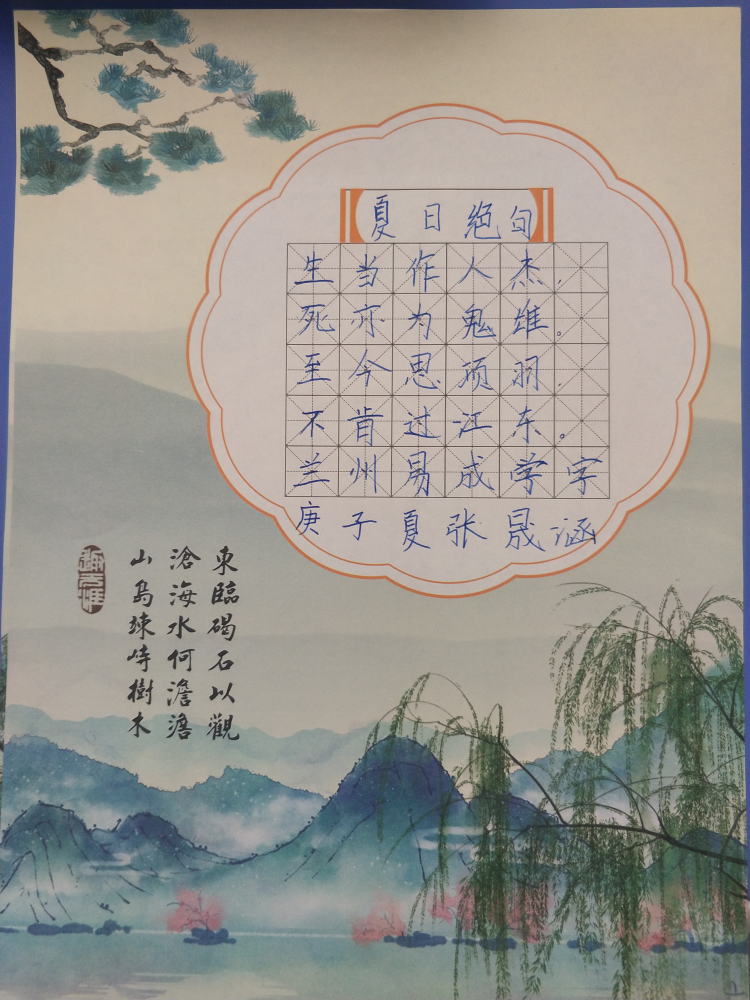 夏日绝句
生当作人杰，
死亦为鬼雄。
至今思项羽，
不肯过江东。
兰州易成学字
庚子夏张晟涵
東臨碣石以觀
滄海水何澹澹
山島竦峙樹木